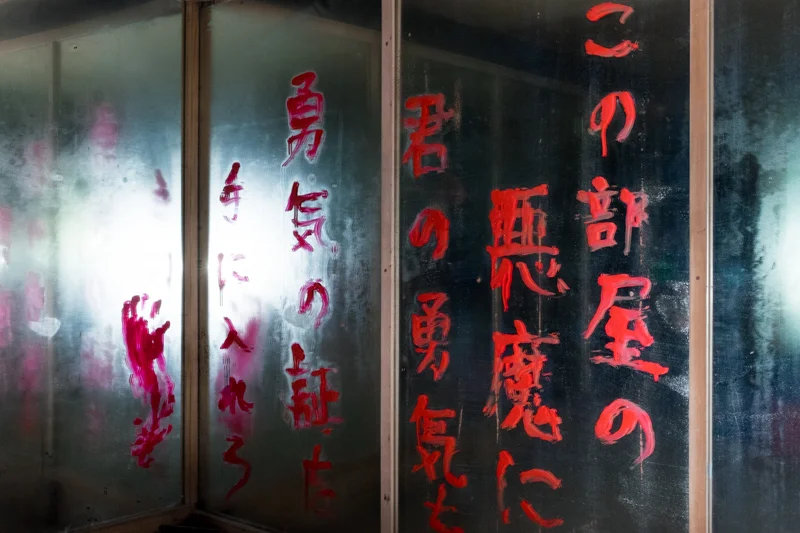 この部屋の
悪魔に
君の勇気を
勇気の証を
手に入れろ